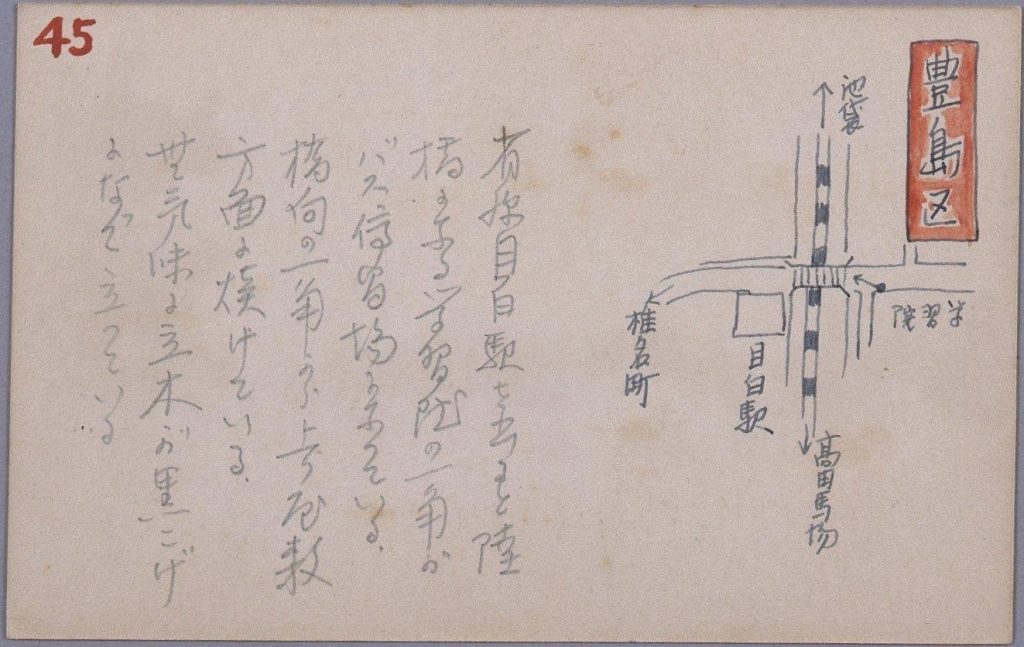 45
豊島区
池袋
学習院
椎名町
目白駅
高田馬場
省線目白駅を出ると陸
橋に 学習院の一角が
バス停留場になっている。
橋向の一角から上り屋敷
方面に焼けている。
無気味に立木が黒こげ
になって立っている